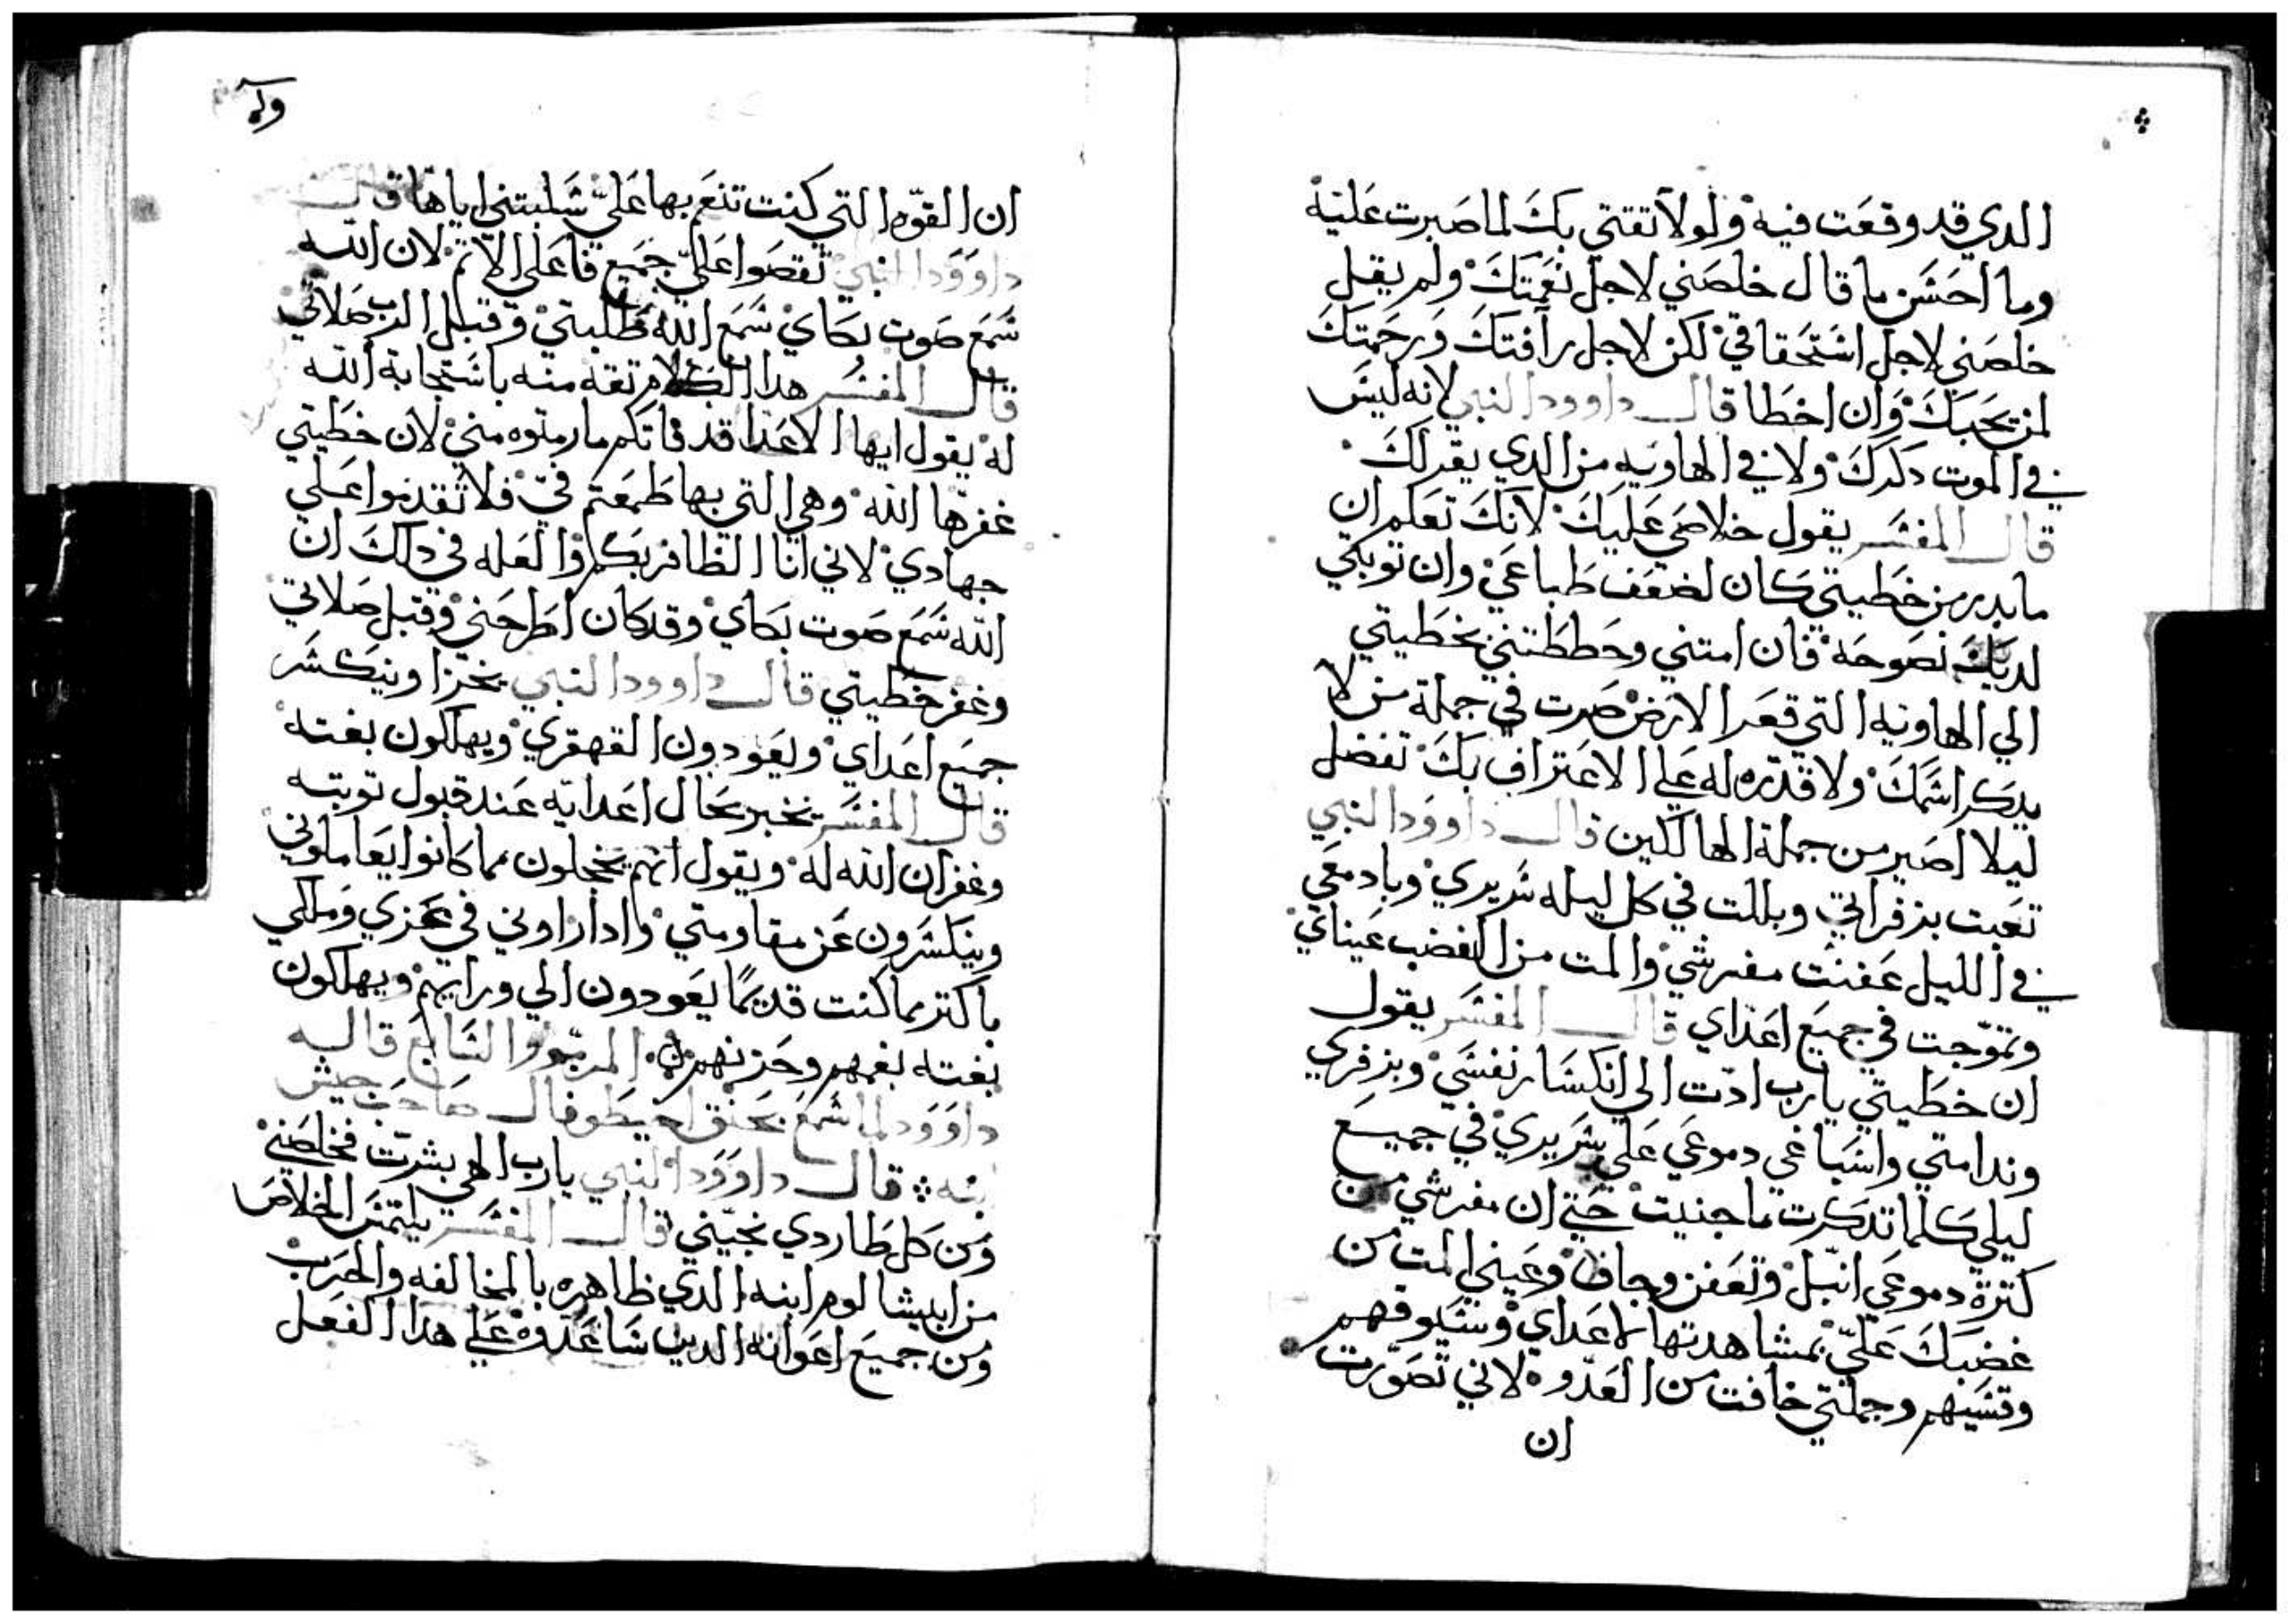 الدي قد وقعت فيه ولولا تقتي بك لما صبرت عليه
وما احسن ما قال خلصني لاجل نعمتك ولم يقل
خلصني لاجل استحقاقي لكن لاجل رآفتك ورحمتك
لمن يحبك وان اخطا قال داوود النبي لانه ليس
في الموت دكرك ولا في الهاويه من الدي يقر لك
قال المفسر يقول خلاصي عليك لانك تعلم ان
ما بدر من خطيتي كان لضعف طباعي وان توبتي
لديك نصوحه فان امتني وحططتني بخطيتي
الي الهاويه التي قعر الارض صرت في جملة من لا
يدكر اسمك ولا قدره له علي الاعتراف بك تفضل
ليلا اصير من جملة الهالكين قال داوود النبي
تعبت بزفراتي وبللت في كل ليله سريري وبادمعي
في الليل عفنت مفرشي والمت من الغضب عيناي
وتموجت في جميع اعداي قال المفسر يقول
ان خطيتي يا رب ادت الي انكسار نفسي وبزفري
وندامتي واسباغي دموعي علي سريري في جميع
ليلي كلما تدكرت ما جنيت حتي ان مفرشي من
كترة دموعي انبل وتعفن وجاف وعيني المت من
غضبك علي بمشاهدتها لاعداي وسيوفهم
وقسيهم وجملتي خافت من العدو لاني تصورت
ان
وله
ان القوه التي كنت تنعم بها علي سلبتني اياها قال
داوود النبي تقصوا علي جميع فاعلي الاتم لان الله
سمع صوت بكاي سمع الله طلبتي وقبل الرب صلاتي
قال المفسر هدا الكلام تقه منه باستجابة الله
له يقول ايها الاعدا قد فاتكم ما رمتوه مني لان خطيتي
غفرها الله وهي التي بها طمعتم في فلا تقدموا علي
جهادي لاني انا الظافر بكم والعله في دلك ان
الله سمع صوت بكاي وقد كان اطرحني وقبل صلاتي
وغفر خطيتي قال داوود النبي يخزا وينكسر
جميع اعداي ويعودون القهقري ويهلكون بغته
قال المفسر يخبر بحال اعدايه عند قبول توبته
وغفران الله له ويقول انهم يخجلون مما كانوا يعاملوني
وينكسرون عن مقاومتي وادا راوني في عزي وملكي
باكتر مما كنت قديما يعودون الي ورايهم ويهلكون
بغته بغمهم وحزنهم المزمور السابع قاله
داوود لما سمع بخنق اخيطوفال صاحب جيش
ابنه قال داوود النبي يا رب الهي بشرت فخلصني
ومن كل طاردي نجيني قال المفسر يلتمس الخلاص
من ابيشالوم ابنه الدي ظاهره بالمخالفه والحرب
ومن جميع اعوانه الدين ساعدوه علي هدا الفعل